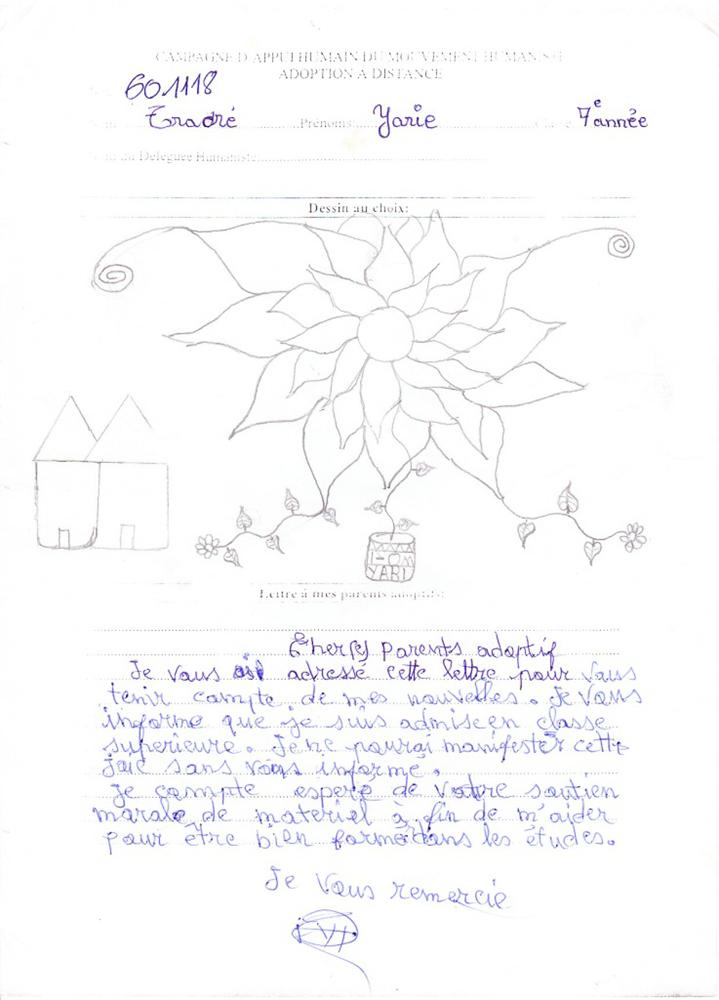 CAMPAGNE D'APPUI HUMAIN DU MOUVEMENT HUMANISTE
ADOPTION A DISTANCE
601118
Traoré Prénoms: Yarie Classe 7e année
Nom du Déléguée Humaniste
Dessin au choix:
YARI
Lettre à mes parents adoptifs:
Cher(e) Parents adoptif
Je vous ai adressé cette lettre pour vous
tenir compte de mes nouvelles. Je vous
informe que je suis admise en classe
superieure. Je ne pourai manifester cette
joie sans vous informé.
Je compte espere de votre soutien
morale de materiel à fin de m'aider
pour être bien formé dans les études.
Je vous remercie